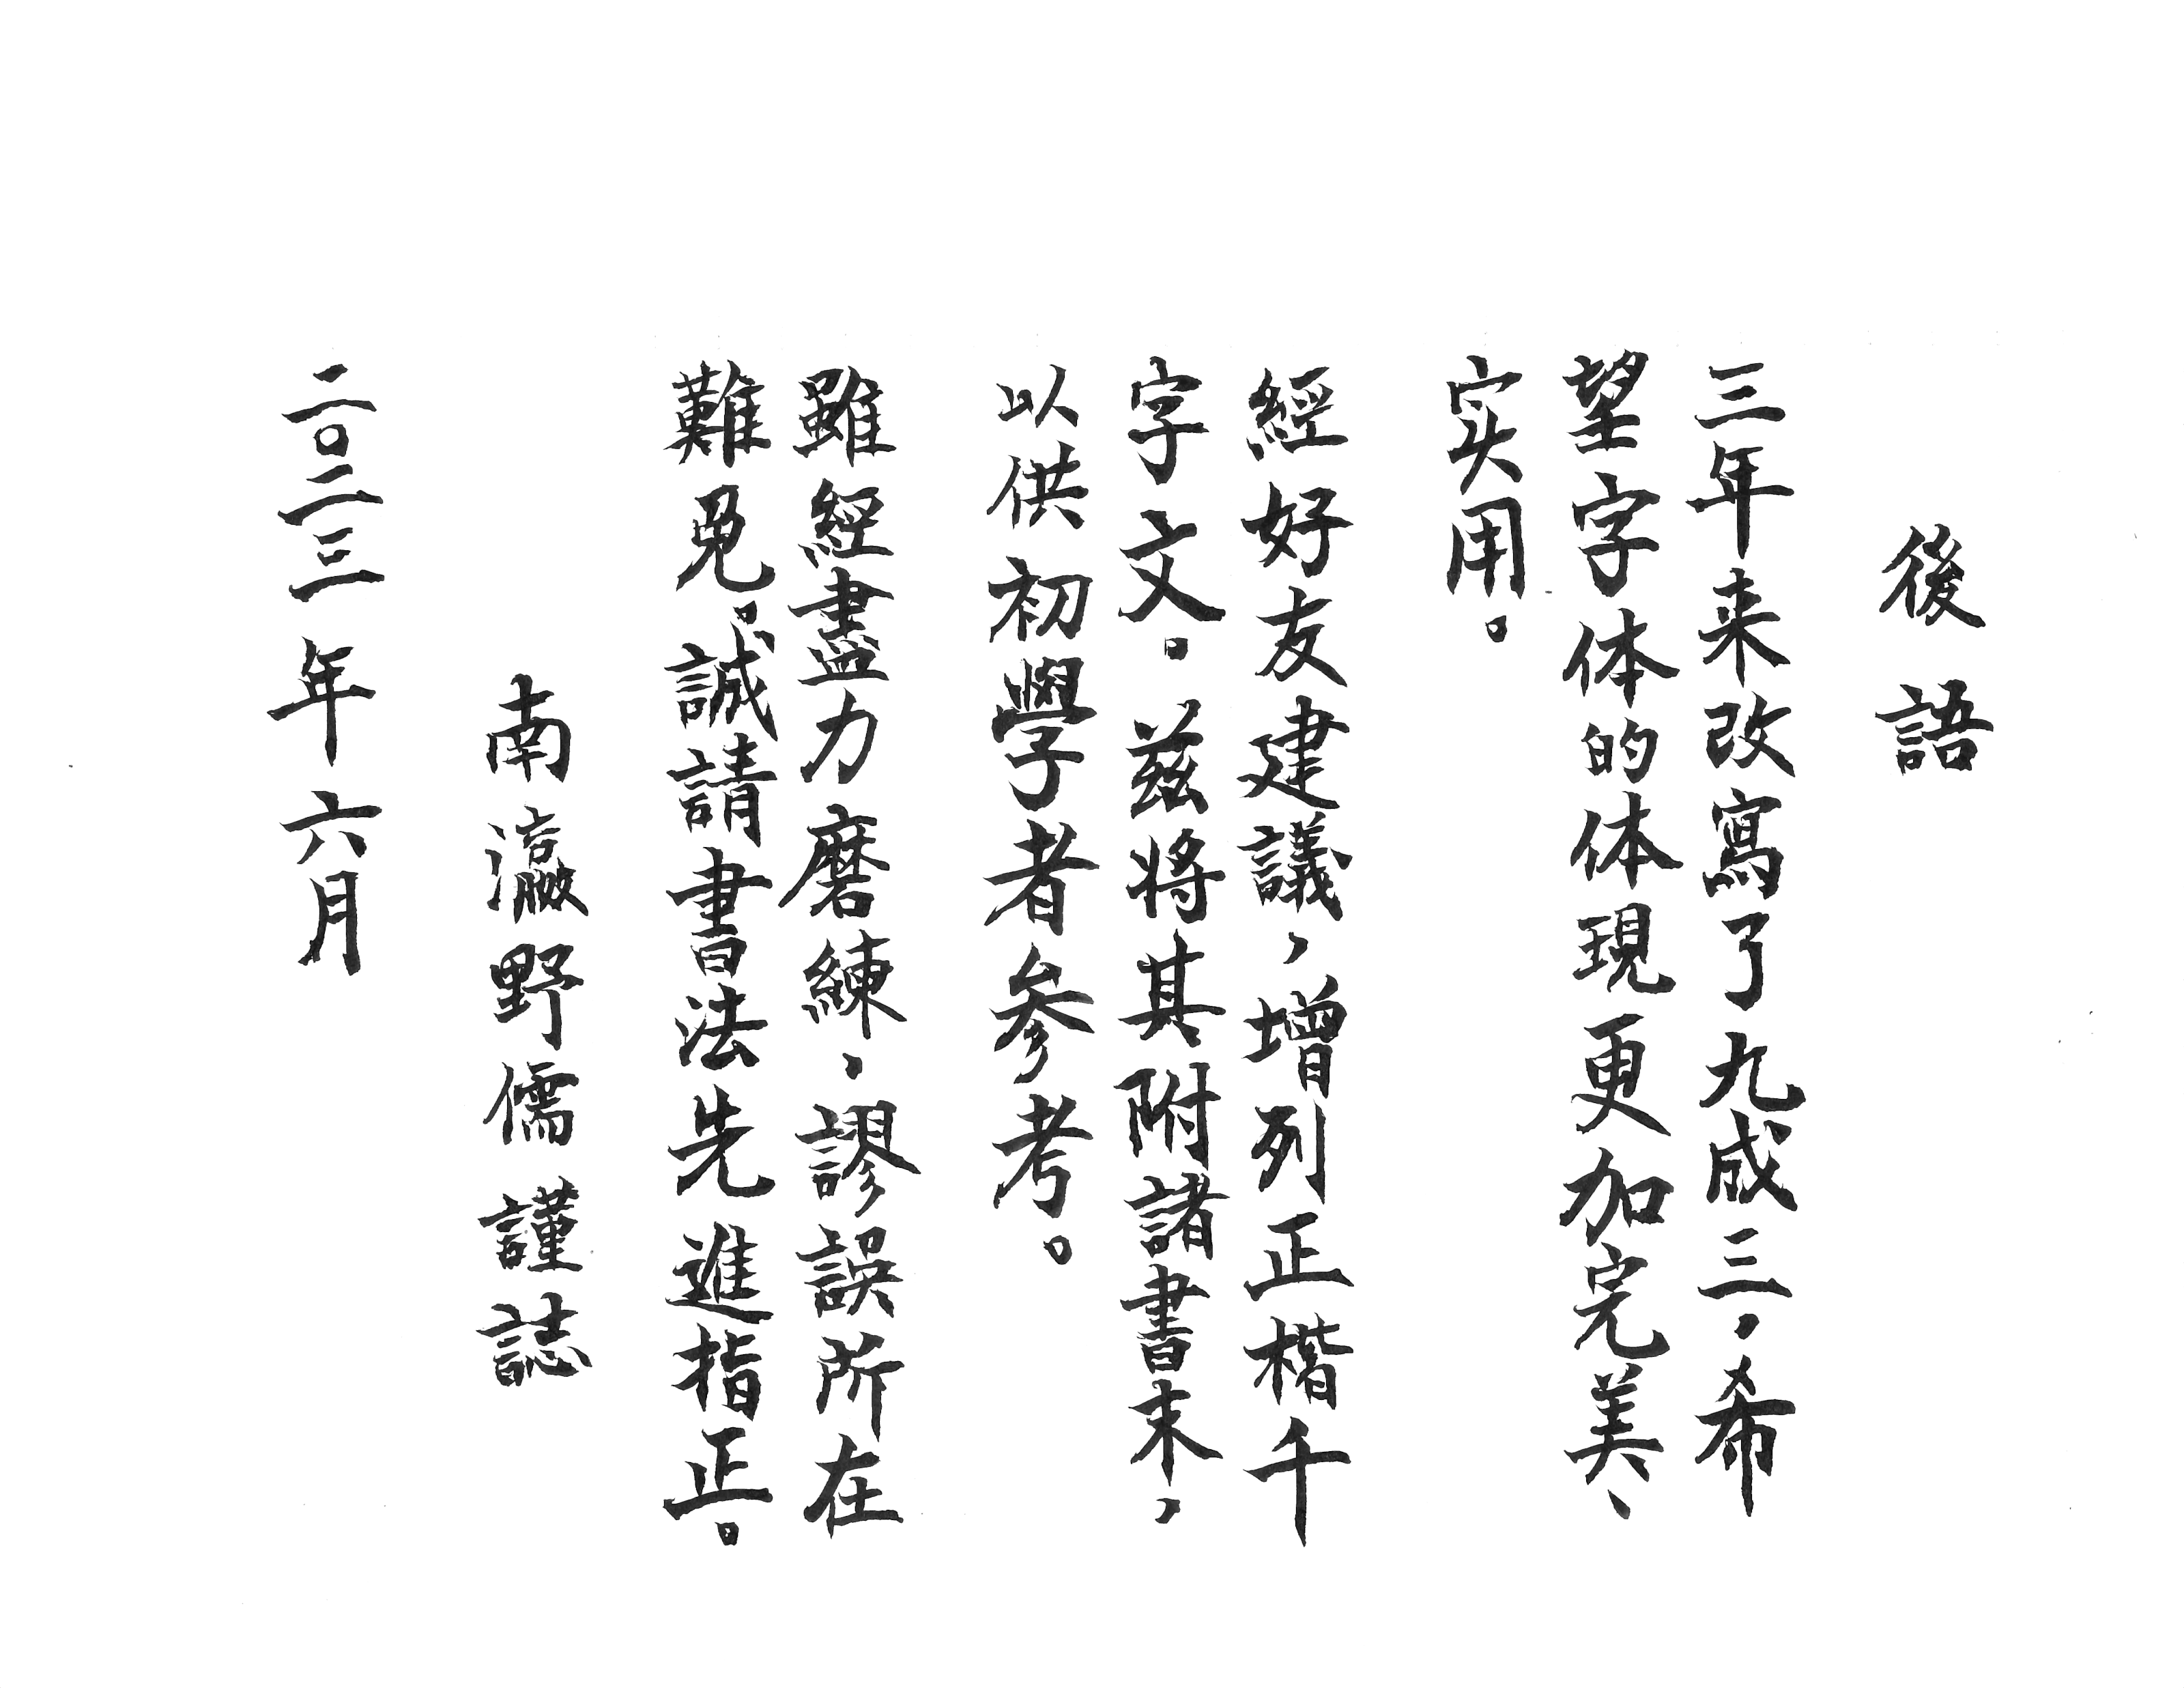 後語
三年来改寫了九成三，希
望字体的体現更加完美、
实用。
經好友建議，增列正楷千
字文。兹將其附諸書末，
以供初學者参考。
雖經盡力磨練，謬誤所在
難免。誠請書法先進指正。
南瀛野儒謹誌
二〇二三年六月